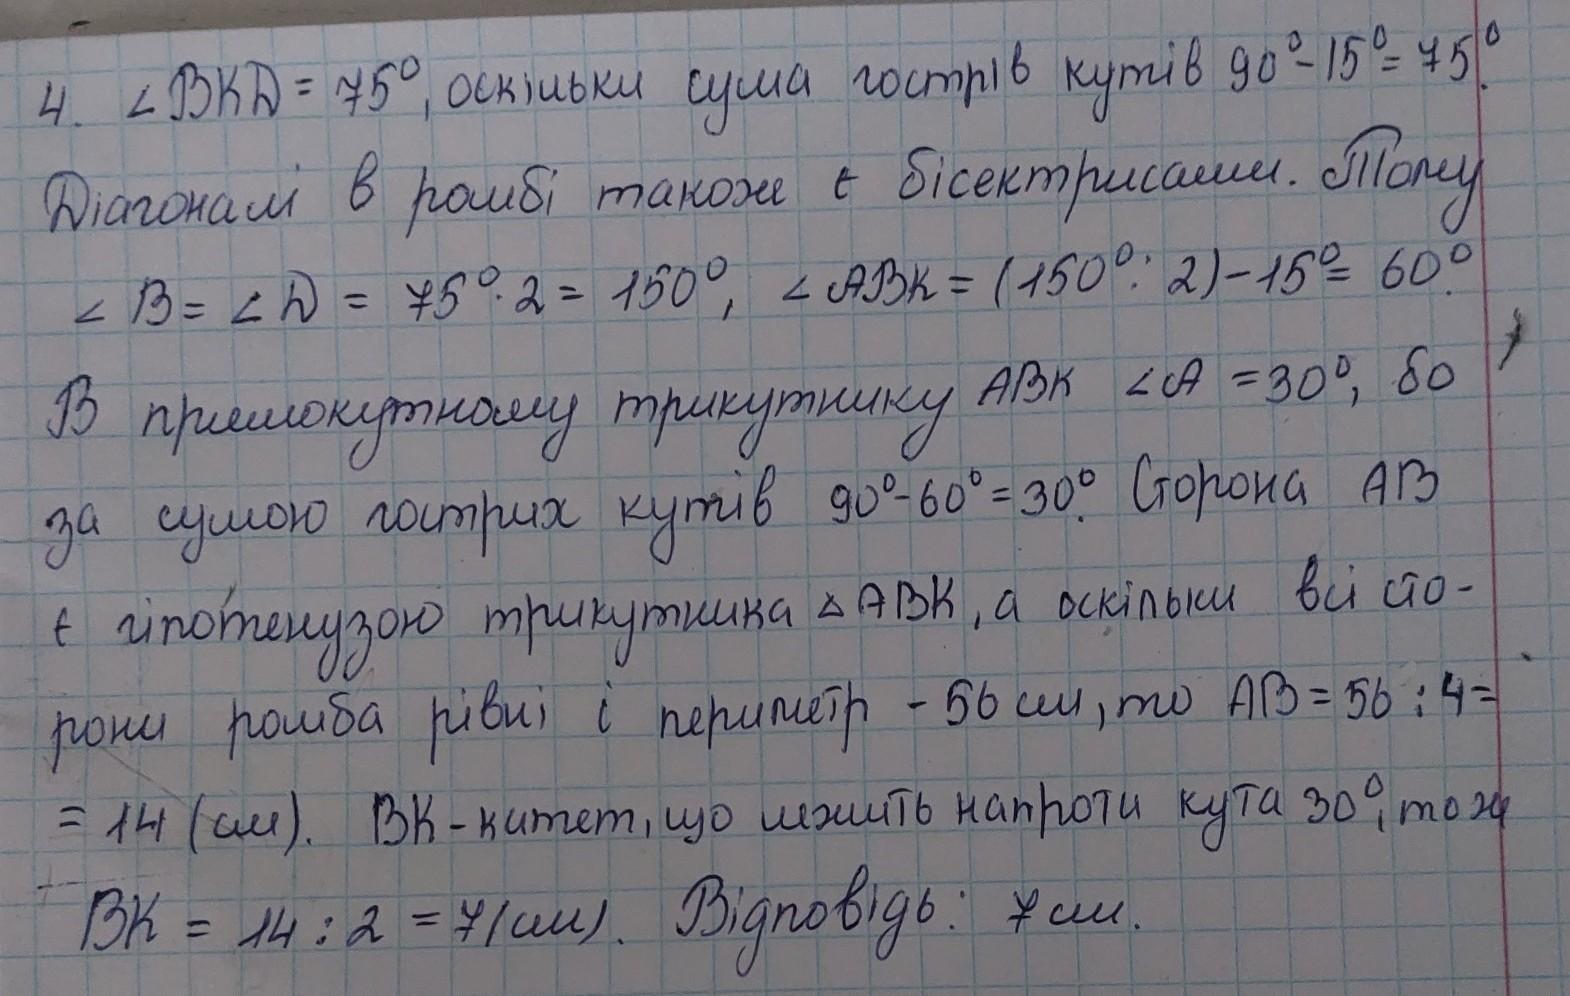 4. ∠BKD = 75⁰, оскільки сума гострів кутів 90⁰-15⁰=75⁰.
Діагоналі в ромбі також є бісектрисами. Тому
∠B = ∠D = 75⁰·2 = 150⁰, ∠ABK = (150⁰:2)-15⁰= 60⁰.
В прямокутному трикутнику ABK ∠A =30⁰, бо
за сумою гострих кутів 90⁰-60⁰=30⁰. Сторона AB
є гіпотенузою трикутника △ABK, а оскільки всі сто-
рони ромба рівні і периметр - 56 см, то AB = 56 : 4=
= 14 (см). BK-катет, що лежить напроти кута 30⁰, тож
BK = 14 : 2 = 7(см). Відповідь: 7 см.